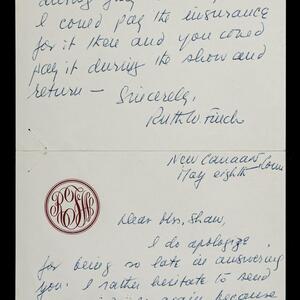 I could pay the insurance
for it then and you could
pay it during the show and
return —
Sincerely,
Ruth W. Finch
New Canaan Conn
May eighth
Dear Mrs. Shaw,
I do apologize
for being so late in answering
you. I rather hesitate to send
again because